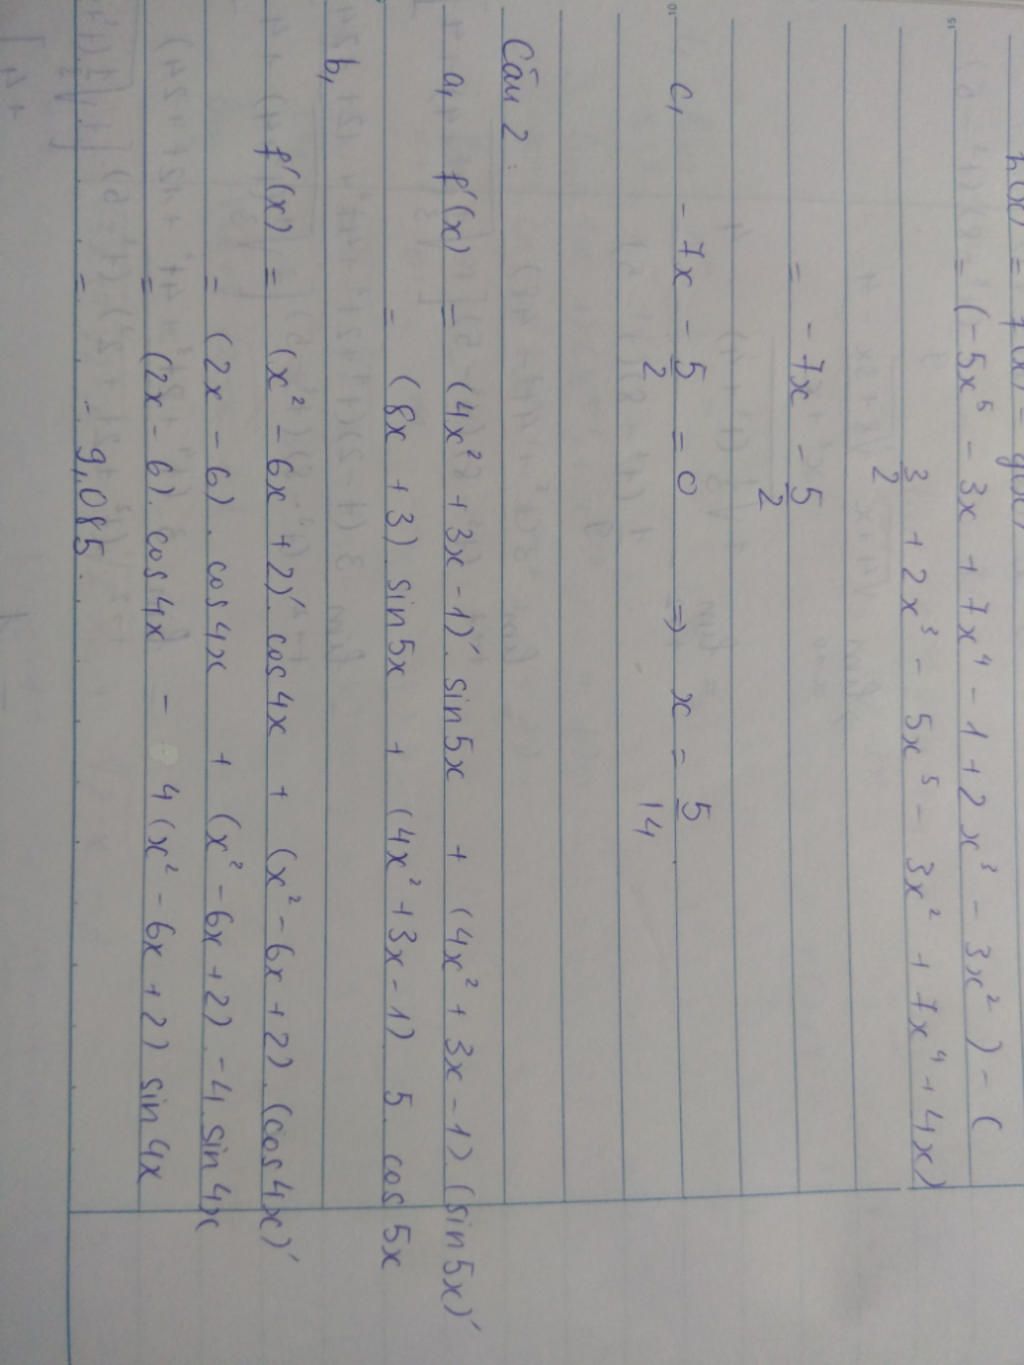 h(x) = f(x) - g(x)
= (-5x⁵ - 3x + 7x⁴ - 1 + 2x³ - 3x²) - (
3/2 + 2x³ - 5x⁵ - 3x² + 7x⁴ + 4x)
= -7x - 5/2
c, -7x - 5/2 = 0 => x = 5/14
Câu 2:
a, f'(x) = (4x² + 3x - 1)'. sin5x + (4x² + 3x - 1). (sin5x)'
= (8x + 3). sin5x + (4x² + 3x - 1). 5. cos5x
b,
f'(x) = (x² - 6x + 2)'. cos4x + (x² - 6x + 2). (cos4x)'
= (2x - 6). cos4x + (x² - 6x + 2). -4. sin4x
= (2x - 6). cos4x - 4(x² - 6x + 2) sin4x
= -9,085.